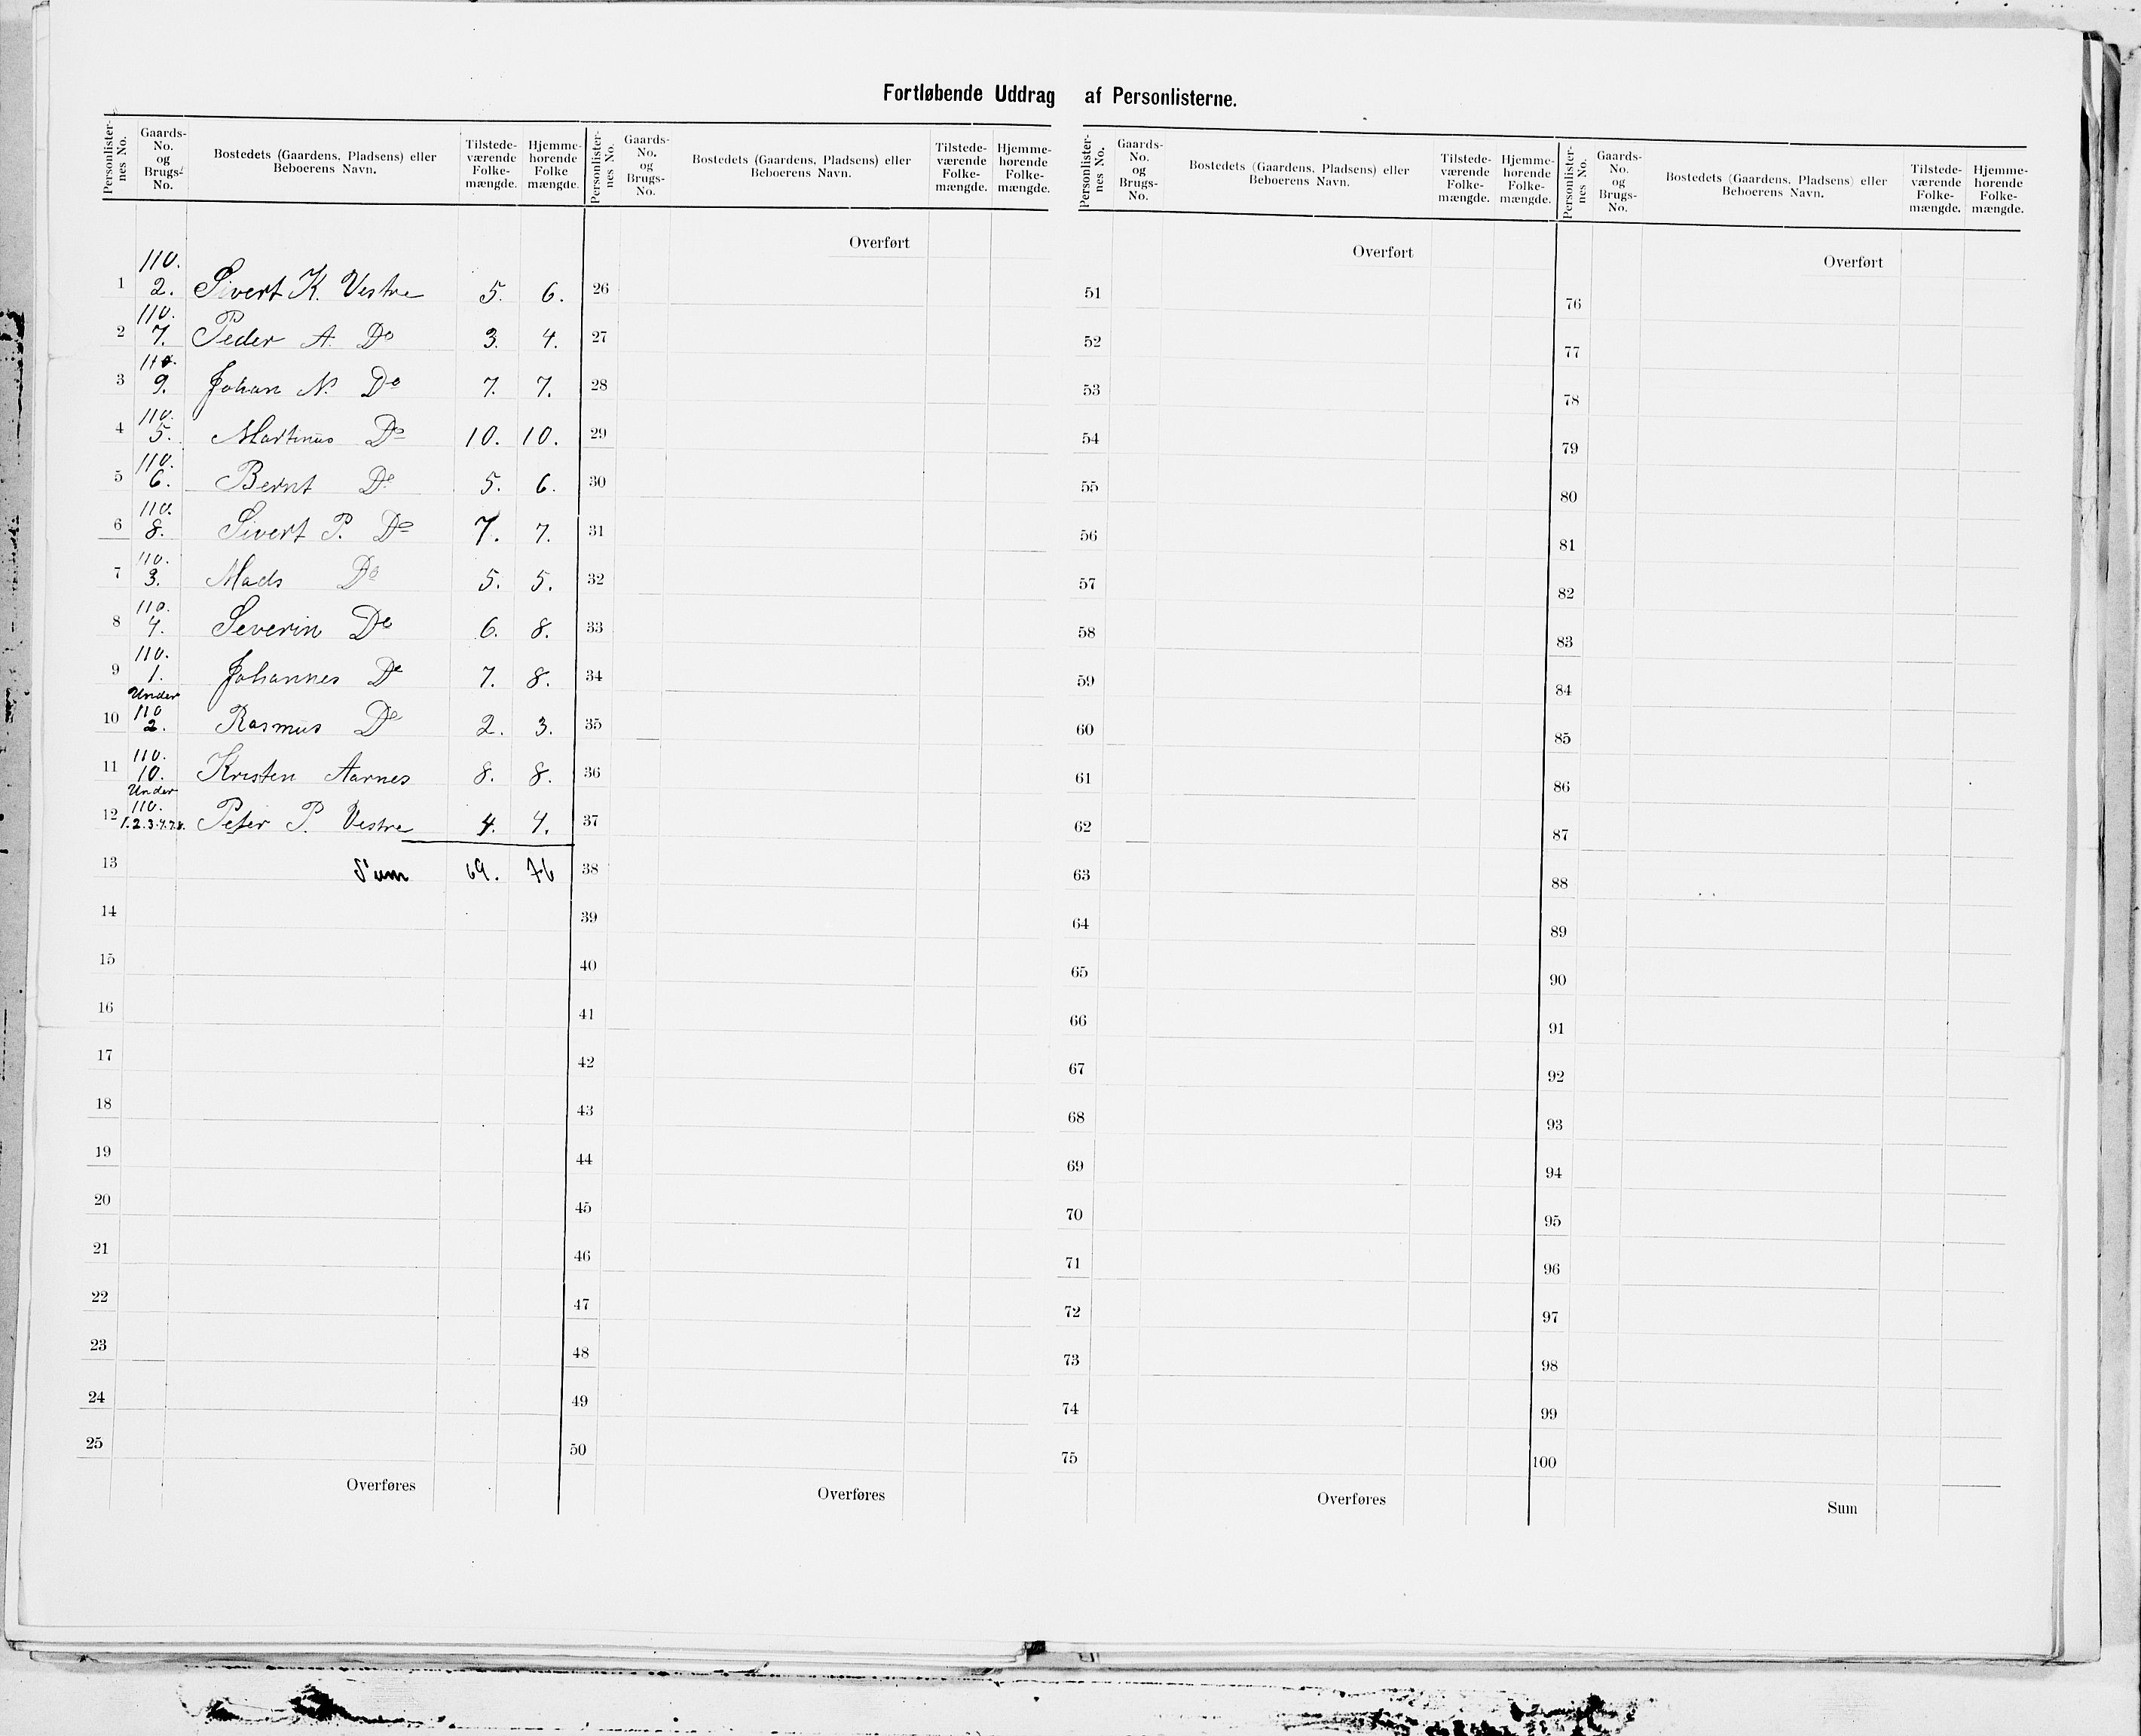 Fortløbende Uddrag af Personlisterne.
Personlister-nes No. Gaards-No. og Brugs-No. Bostedets (Gaardens, Pladsens) eller Beboerens Navn. Tilstede-værende Folke-mængde. Hjemme-hørende Folke mængde. Personlister-nes No. Gaards-No. og Brugs-No. Bostedets (Gaardens, Pladsens) eller Beboerens Navn. Tilstede-værende Folke-mængde. Hjemme-hørende Folke-mængde. Personlister-nes No. Gaards-No. og Brugs-No. Bostedets (Gaardens, Pladsens) eller Beboerens Navn. Tilstede-værende Folke-mængde. Hjemme-hørende Folke-mængde. Personlister-nes No. Gaards-No. og Brugs-No. Bostedets (Gaardens, Pladsens) eller Beboerens Navn. Tilstede-værende Folke-mængde. Hjemme-hørende Folke-mængde.
Overført Overført Overført
110.
1 2. Sivert K. Vestre 5. 6. 26 51 76
110.
2 7. Peder A. Do 3. 4. 27 52 77
110.
3 9. Johan N. Do 7. 7. 28 53 78
110.
4 5. Martinus Do 10. 10. 29 54 79
110.
5 6. Bernt Do 5. 6. 30 55 80
110.
6 8. Sivert P. Do 7. 7. 31 56 81
110.
7 3. Mads Do 5. 5. 32 57 82
110.
8 4. Severin Do 6. 8. 33 58 83
110.
9 1. Johannes Do 7. 8. 34 59 84
Under
110
10 2. Rasmus Do 2. 3. 35 60 85
110.
11 10. Kristen Aarnes 8. 8. 36 61 86
Under
110.
12 1.2.3.4.7.8. Peter P. Vestre 4. 4. 37 62 87
13 Sum 69. 76 38 63 88
14 39 64 89
15 40 65 90
16 41 66 91
17 42 67 92
18 43 68 93
19 44 69 94
20 45 70 95
21 46 71 96
22 47 72 97
23 48 73 98
24 49 74 99
25 50 75 100
Overføres Overføres Overføres Sum